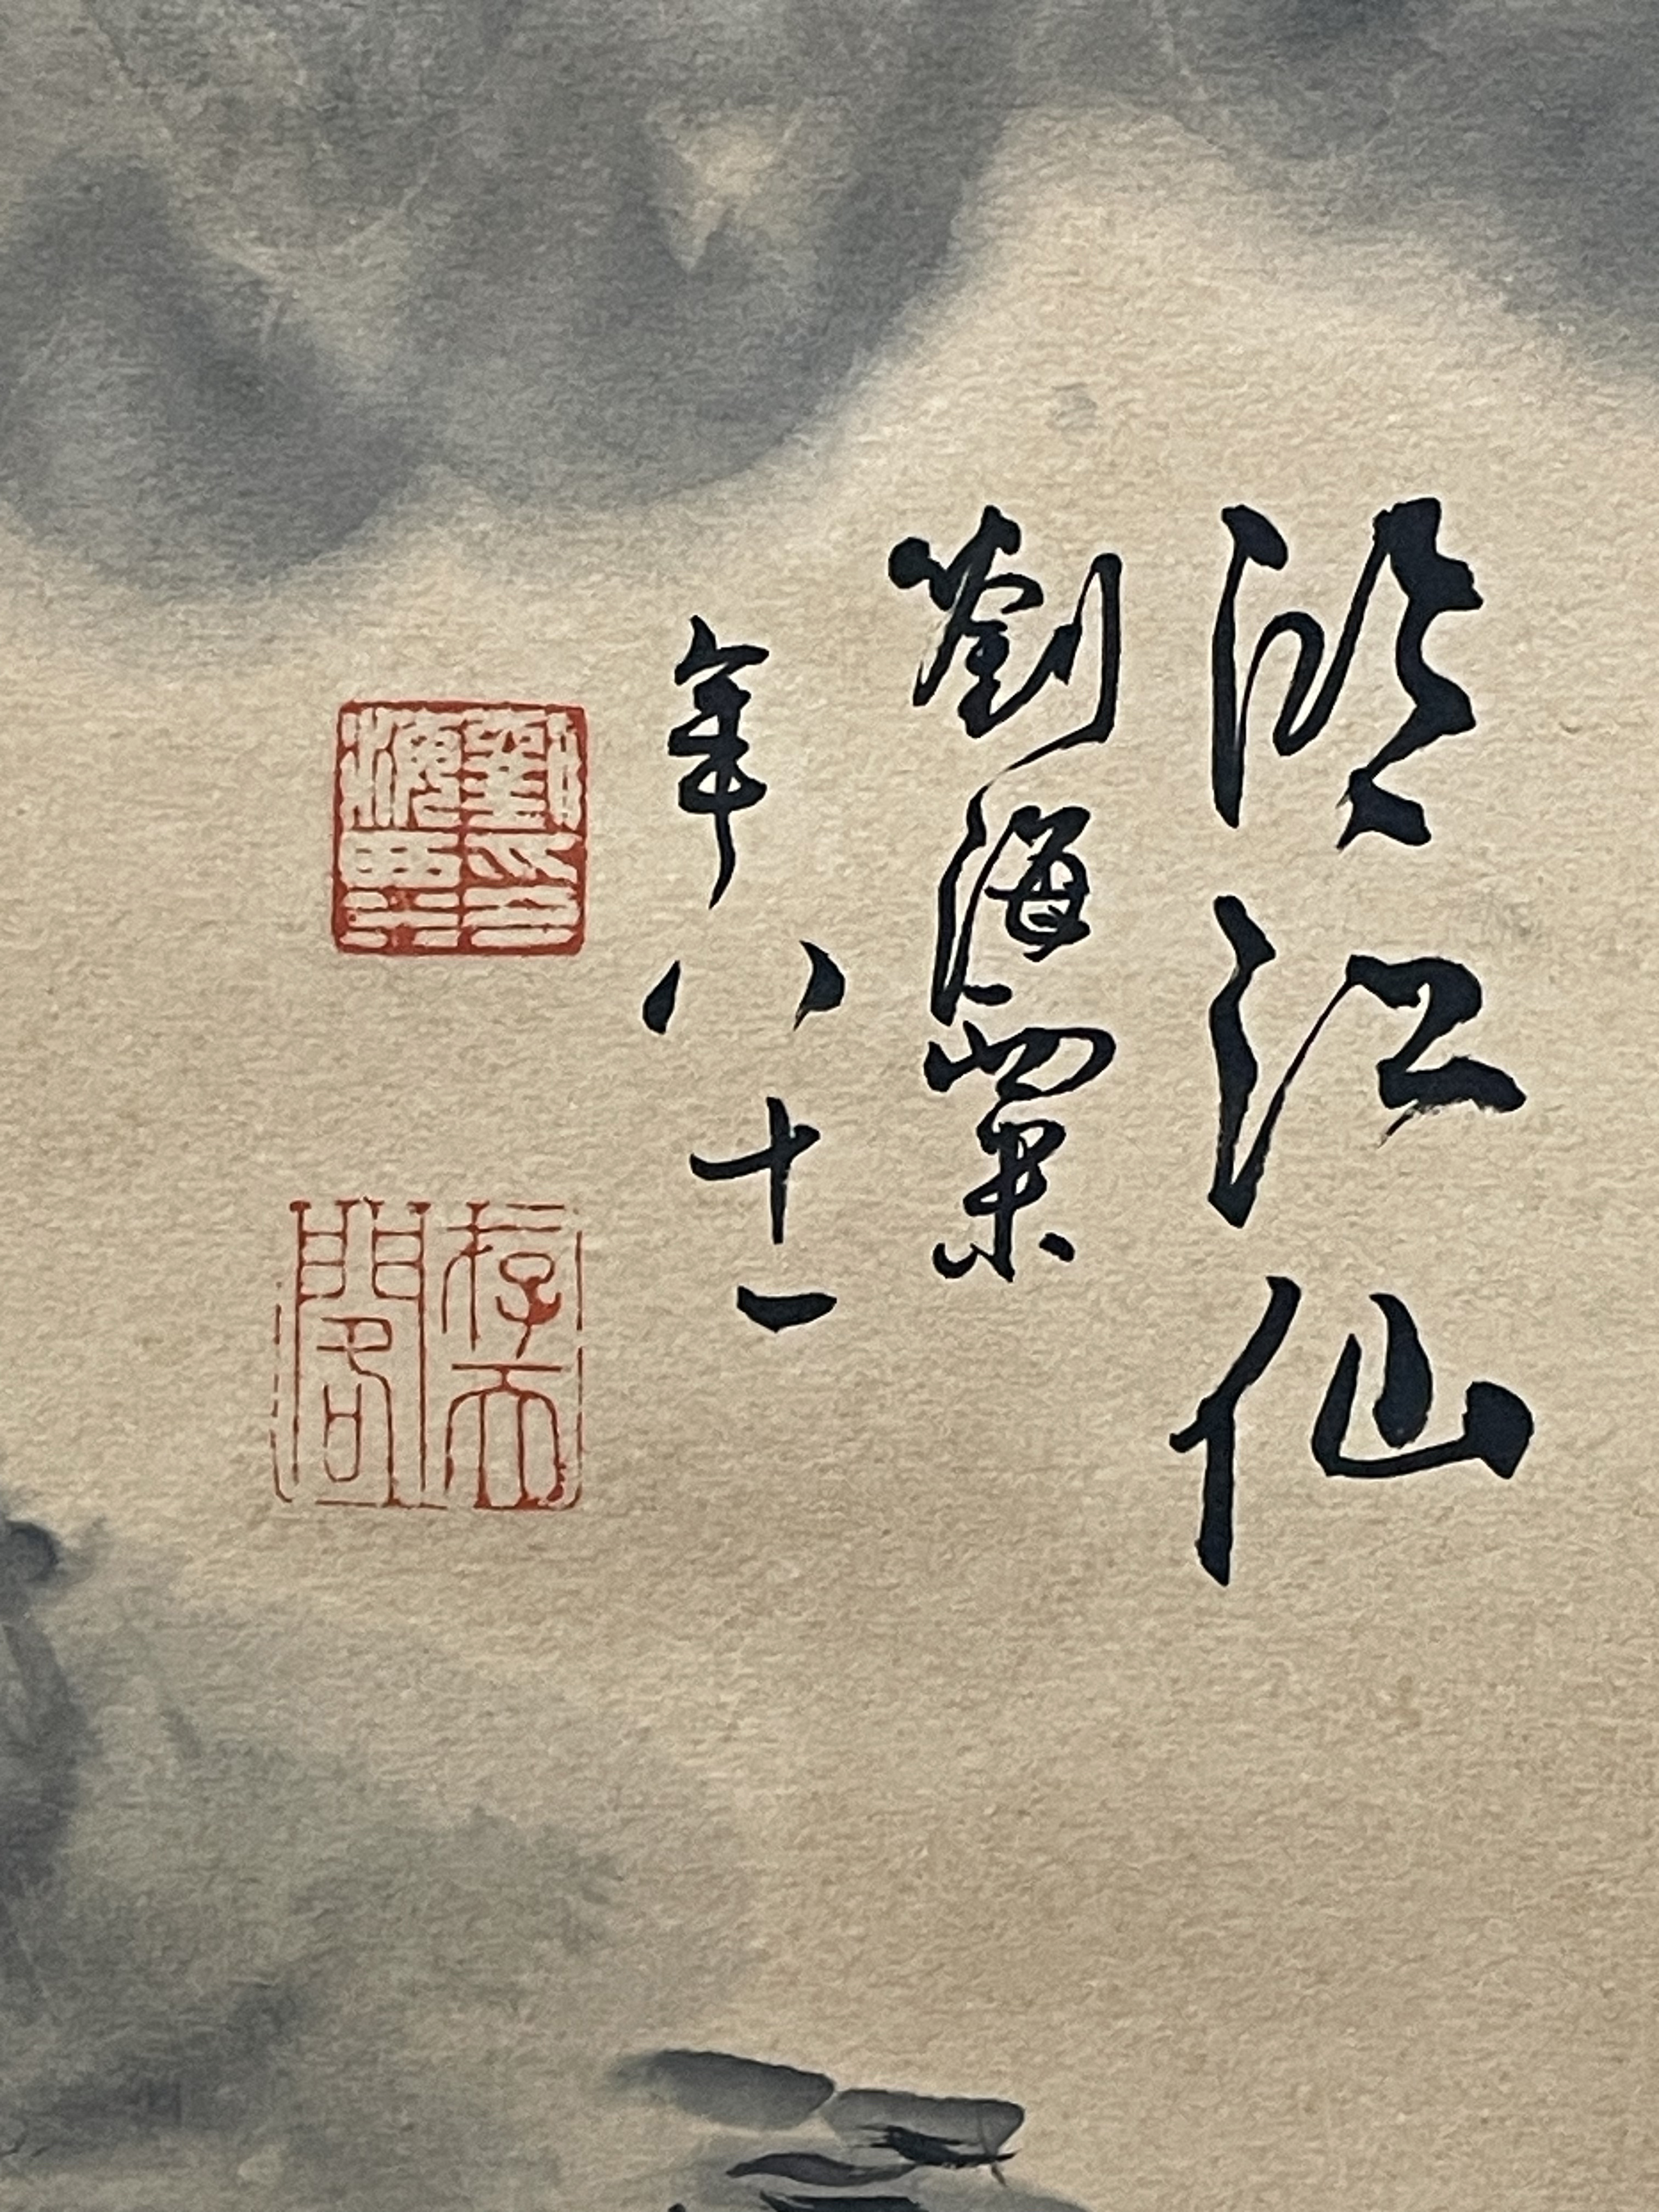 臨江仙
劉海粟
年八十一
劉印
海粟
存天
閣